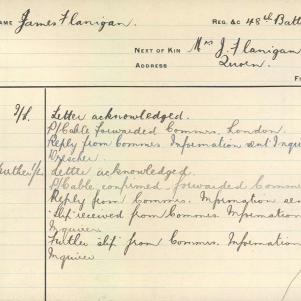 NAME James Flanigan. REG. &C 48th Batt
NEXT OF KIN Mrs J. Flanigan
ADDRESS
Letter acknowledged.
P/Cable forwarded Commrs. London.
Reply from Commrs. Information sent Inqui
Letter acknowledged
P/Cable confirmed, forwarded Comm
Reply from Commrs. Information sen
"slip" received from Commrs. Information
Inquirer
Further slip from Commrs. Information
Inquirer